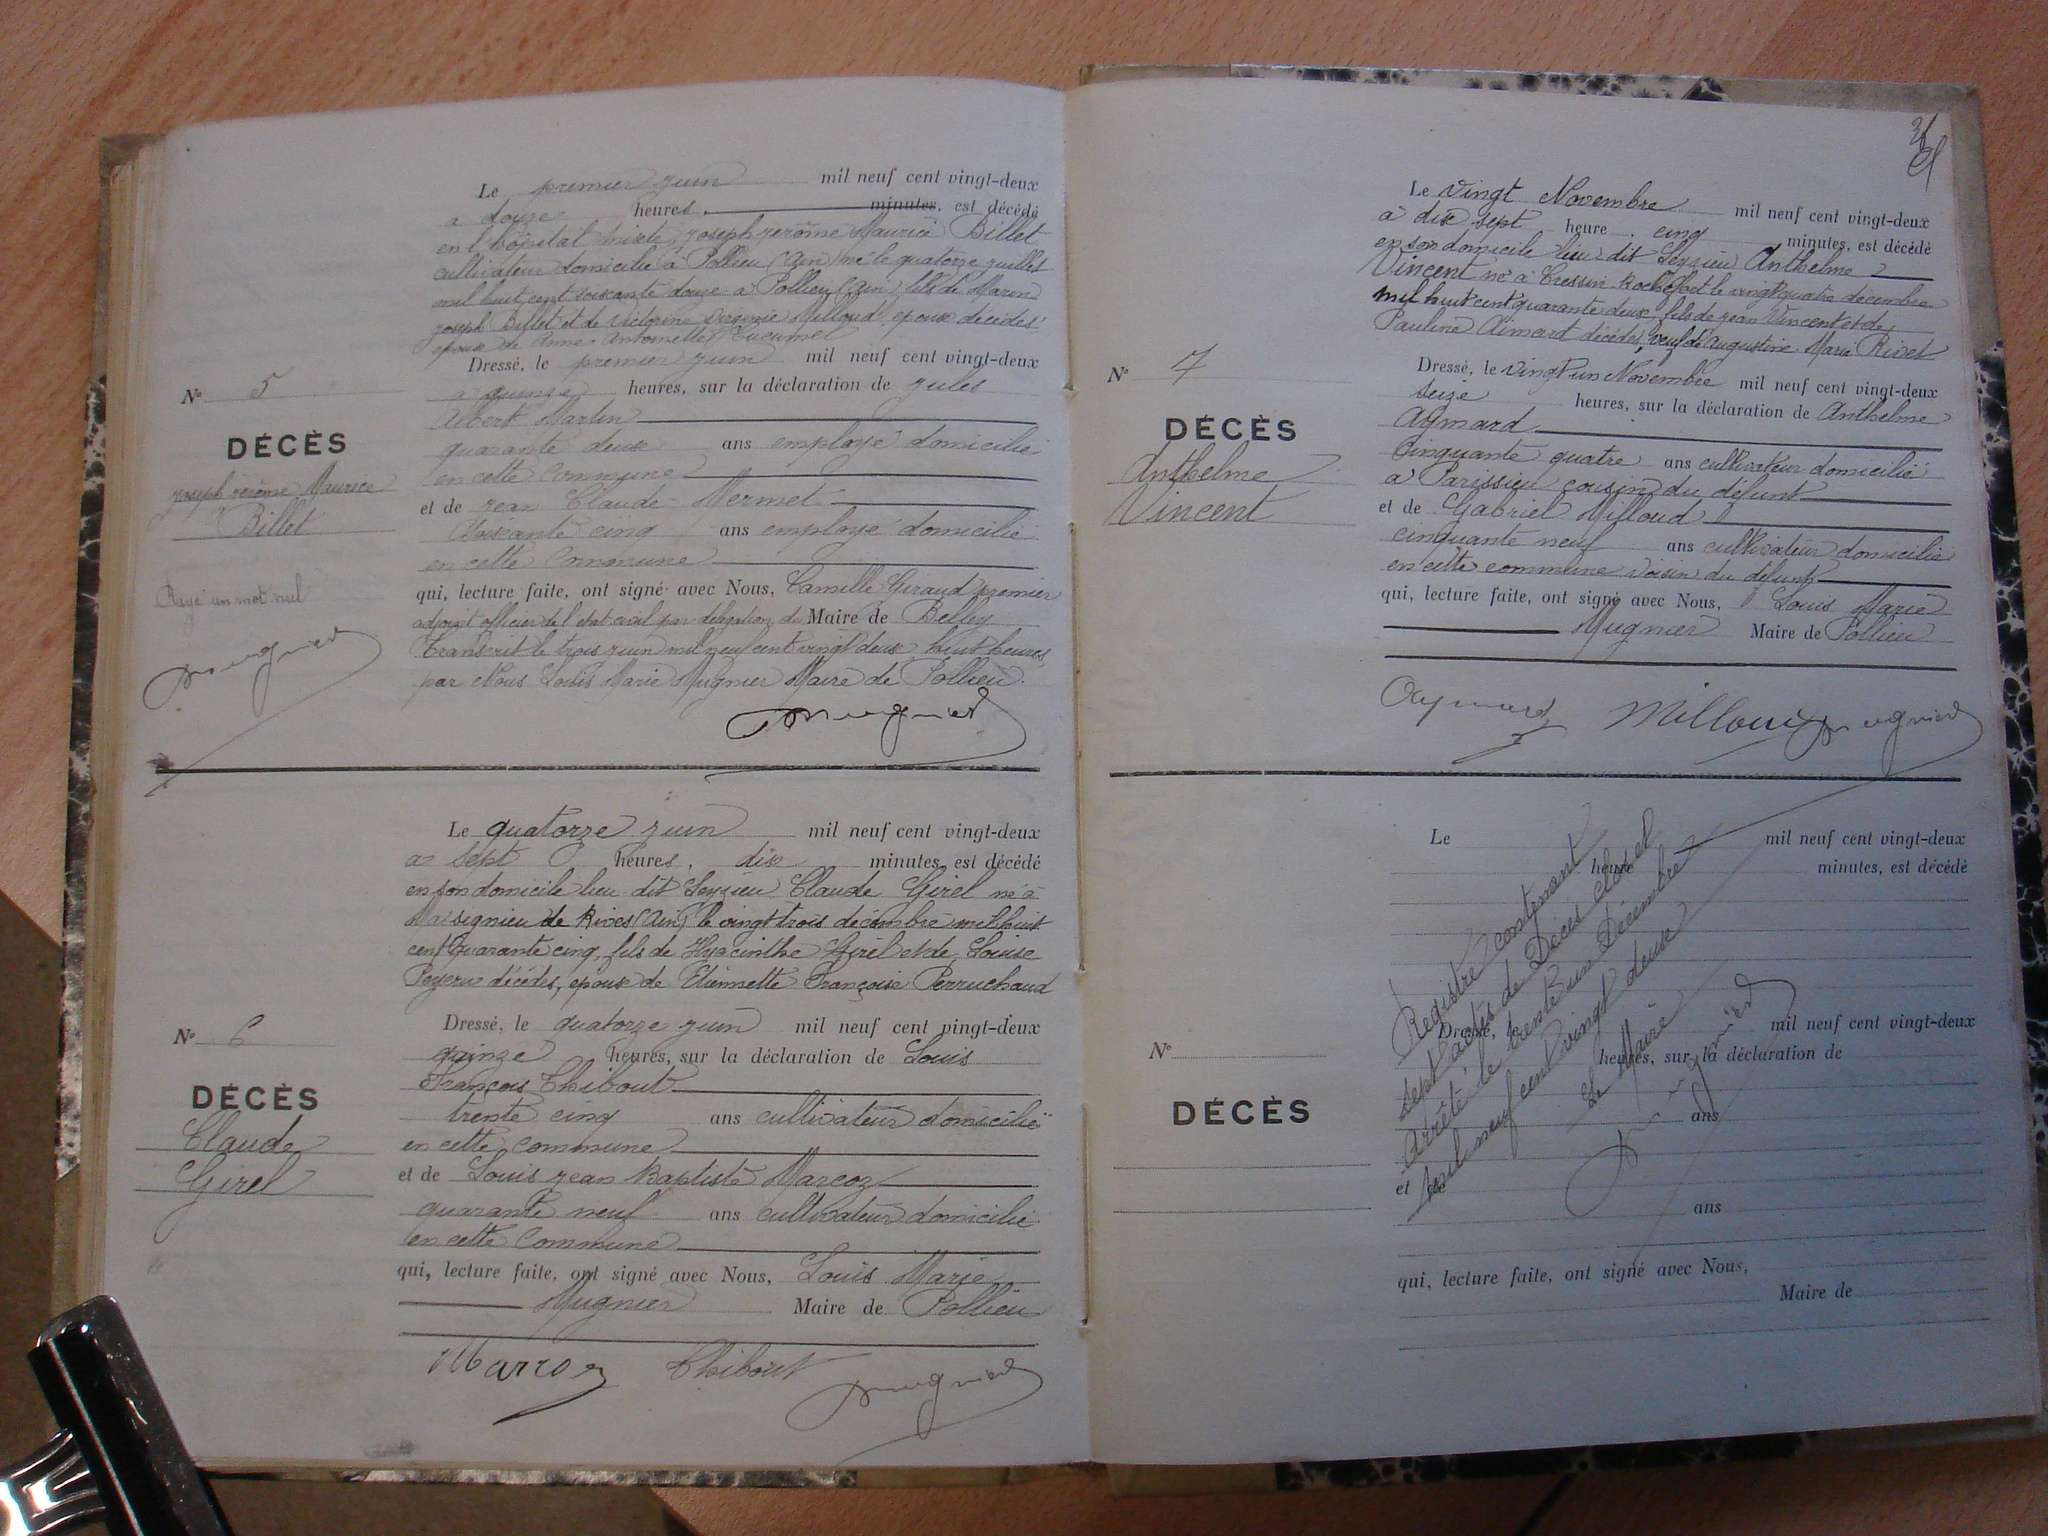 Le premier juin mil neuf cent vingt-deux
à douze heures, minutes, est décédé
en l'hôpital mixte, Joseph Jérôme Maurice Billet
cultivateur domicilié à Pollieu (Ain) né le quatorze juillet
mil huit cent soixante douze à Pollieu (Ain), fils de Marin
Joseph Billet et de Victorine Milloud époux décédés
époux de Anne Antoinette
Dressé, le premier juin mil neuf cent vingt-deux
à quinze heures, sur la déclaration de Jules
Albert Martin
quarante deux ans employé domicilié
en cette commune
et de Jean Claude Mermet
soixante cinq ans employé domicilié
en cette commune
qui, lecture faite, ont signé avec Nous, Camille Giraud premier
adjoint officier de l'état civil par délégation du Maire de Belley
Transcrit le trois juin mil neuf cent vingt deux huit heures,
par Nous Louis Marie Mugnier Maire de Pollieu.
Mugnier
No 5
DÉCÈS
Joseph Jérôme Maurice
Billet
Rayé un mot nul
Mugnier
Le quatorze juin mil neuf cent vingt-deux
à sept heures, dix minutes, est décédé
en son domicile lieu dit Leyzieu Claude Girel né à
Massignieu de Rives (Ain) le vingt trois décembre mil huit
cent quarante cinq, fils de Hyacinthe Girel et de Louise
décédés, époux de Etiennette Françoise Perruchaud
No 6
DÉCÈS
Claude
Girel
Dressé, le quatorze juin mil neuf cent vingt-deux
quinze heures, sur la déclaration de Louis
François Thibout
trente cinq ans cultivateur domicilié
en cette commune
et de Louis Jean Baptiste Marcoz
quarante neuf ans cultivateur domicilié
en cette commune
qui, lecture faite, ont signé avec Nous, Louis Marie
Mugnier Maire de Pollieu
Marcoz Thibout Mugnier
Le vingt Novembre mil neuf cent vingt-deux
à dix sept heure, cinq minutes, est décédé
en son domicile lieu dit Leyzieu Anthelme
Vincent né à Cressin Rochefort le vingt quatre décembre
mil huit cent quarante deux, fils de Jean Vincent et de
Pauline Aimard décédés, veuf de Augustine Marie Rivet
No 7
DÉCÈS
Anthelme
Vincent
Dressé, le vingt un Novembre mil neuf cent vingt-deux
seize heures, sur la déclaration de Anthelme
Aymard
Cinquante quatre ans cultivateur domicilié
à Parissieu cousin du défunt
et de Gabriel Milloud
cinquante neuf ans cultivateur domicilié
en cette commune voisin du défunt
qui, lecture faite, ont signé avec Nous, Louis Marie
Mugnier Maire de Pollieu
Aymard Milloud Mugnier
Le mil neuf cent vingt-deux
heure minutes, est décédé
No
DÉCÈS
Dressé, le mil neuf cent vingt-deux
heures, sur la déclaration de
ans
et de
ans
qui, lecture faite, ont signé avec Nous,
Maire de
Registre contenant
sept actes de Décès clos et
arrêté le trente un Décembre
mil neuf cent vingt deux
Le Maire
Mugnier